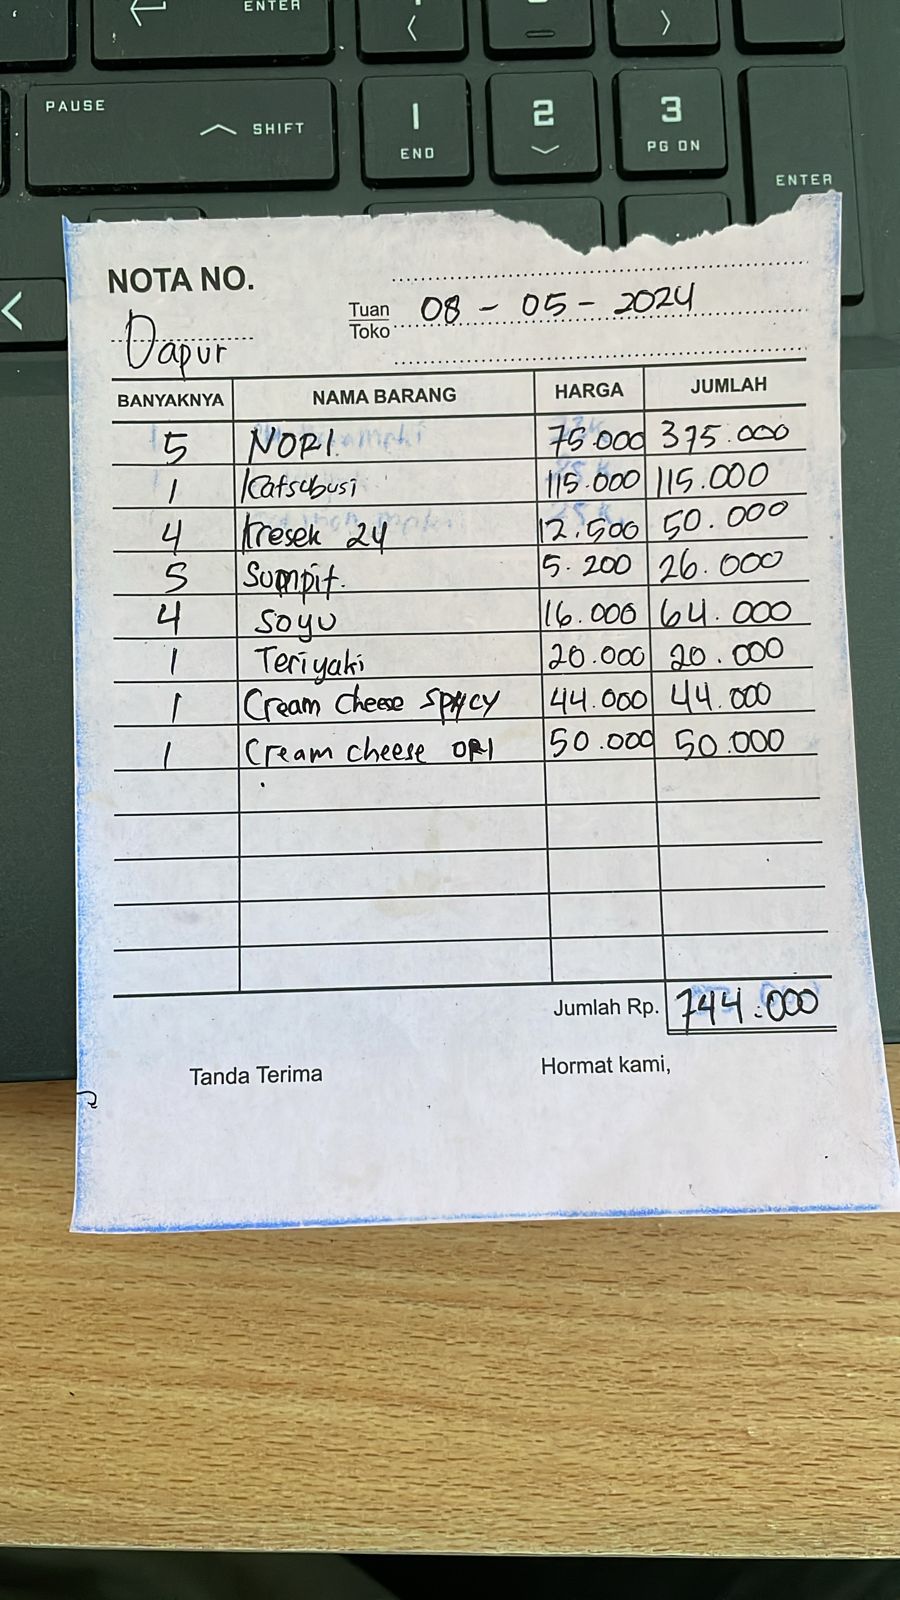 ENTER
PAUSE
SHIFT
1
END
2
3
PG DN
ENTER
NOTA NO.
Dapur
Tuan
Toko
08 - 05 - 2024
BANYAKNYA NAMA BARANG HARGA JUMLAH
5 NORI. 75.000 375.000
1 Katsubusi 115.000 115.000
4 kresek 24 12.500 50.000
5 Sumpit. 5.200 26.000
4 Soyu 16.000 64.000
1 Teriyaki 20.000 20.000
1 Cream cheese SPICY 44.000 44.000
1 Cream cheese ORI 50.000 50.000
Jumlah Rp. 744.000
Tanda Terima Hormat kami,